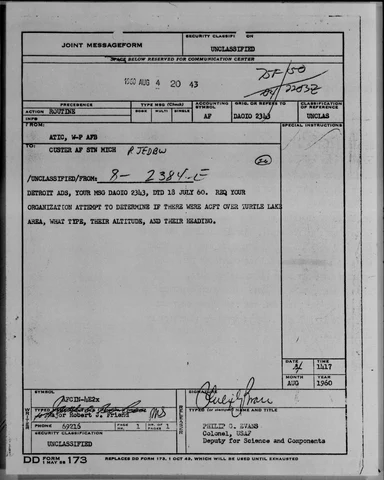 JOINT MESSAGEFORM
SECURITY CLASSIFI ON
UNCLASSIFIED
SPACE BELOW RESERVED FOR COMMUNICATION CENTER
1960 AUG 4 20 43
PRECEDENCE
TYPE MSG (Check)
ACCOUNTING SYMBOL
ORIG. OR REFERS TO
CLASSIFICATION OF REFERENCE
ACTION ROUTINE
BOOK MULTI SINGLE
AF
DAOIO 2343
UNCLAS
INFO
FROM:
SPECIAL INSTRUCTIONS
ATIC, W-P AFB
TO:
CUSTER AF STN MICH RJEDBW
/UNCLASSIFIED/FROM: 8- 2384-E
DETROIT ADS, YOUR MSG DAOIO 2343, DTD 18 JULY 60. REQ YOUR
ORGANIZATION ATTEMPT TO DETERMINE IF THERE WERE ACFT OVER TURTLE LAKE
AREA, WHAT TYPE, THEIR ALTITUDE, AND THEIR HEADING.
DATE TIME
1417
MONTH YEAR
AUG 1960
SYMBOL
AFCIN-4E2x
SIGNATURE
TYPED
Major Robert J. Friend
TYPED (Or stamped) NAME AND TITLE
PHONE 69216
PAGE NR. 1
PAGES 1
SECURITY CLASSIFICATION
UNCLASSIFIED
PHILIP G. EVANS
Colonel, USAF
Deputy for Science and Components
DD FORM 1 MAY 55 173
REPLACES DD FORM 173, 1 OCT 49, WHICH WILL BE USED UNTIL EXHAUSTED